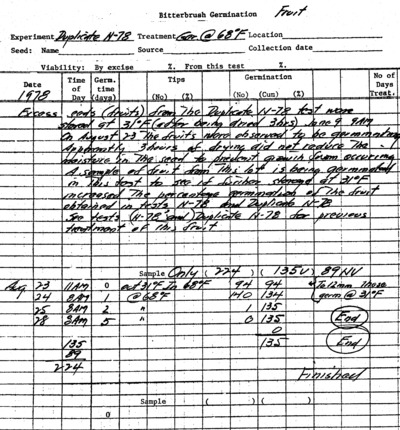 Bitterbrush Germination Fruit
Experiment Duplicate N-78 Treatment Ger. @ 68°F Location
Seed: Name Source Collection date
Viability: By excise %. From this test %.
Date Time of Day Germ. time (days) Tips (No) (%) Germination (No) (Cum) (%) No of Days Treat.
1978
Excess seeds (fruits) from the Duplicate N-78 test were
stored at 31°F (after being dried 3hrs) June 9 9AM
On August 23 the fruits were observed to be germinating
Apparently 3 hours of drying did not reduce the
moisture in the seed to prevent growth from occurring
A sample of fruit from this lot is being germinated
in this test to see if further storage at 31°F
increased the percentage germination of the fruit
obtained in tests N-78 and Duplicate N-78
See tests (N-78 and) Duplicate N-78 for previous
treatment of this fruit
Sample Only (224) (135V) 89NV
Aug 23 11AM 0 ect 31°F To 68°F 94 94 To 12mm those
24 8AM 1 @68°F 40 134 germ @ 31°F
25 8AM 2 " 1 135
28 8AM 5 " 0 135 End
0
135 135 End
89
224
Finished
Sample ( ) ( )
0